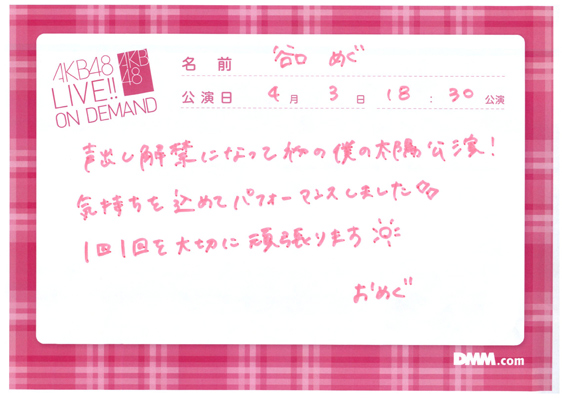 AKB48
LIVE!!
ON DEMAND
AKB
48
名前 谷口 めぐ
公演日 4月 3日 18:30 公演
声出し解禁になって初の僕の太陽公演!
気持ちを込めてパフォーマンスしました
1回1回を大切に頑張ります
おめぐ
DMM.com